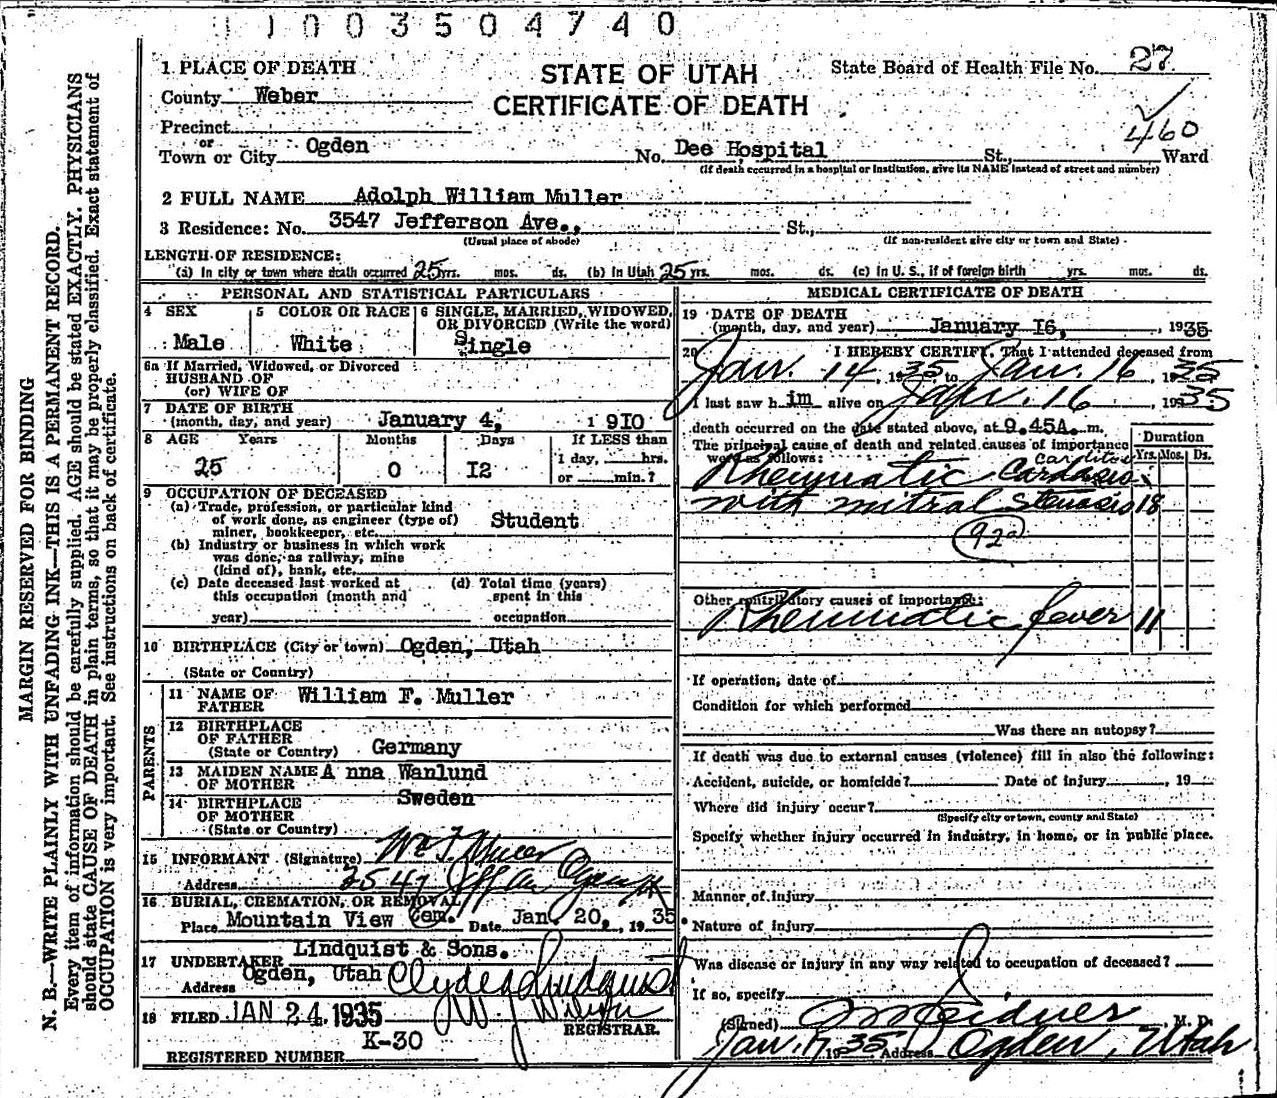 1 1 0 0 3 5 0 4 7 4 0
MARGIN RESERVED FOR BINDING
N. B.—WRITE PLAINLY WITH UNFADING INK—THIS IS A PERMANENT RECORD.
Every item of information should be carefully supplied. AGE should be stated EXACTLY. PHYSICIANS
should state CAUSE OF DEATH in plain terms, so that it may be properly classified. Exact statement of
OCCUPATION is very important. See instructions on back of certificate.
1 PLACE OF DEATH
STATE OF UTAH
CERTIFICATE OF DEATH
State Board of Health File No. 27
460
County Weber
Precinct
or
Town or City Ogden No. Dee Hospital St., Ward
(If death occurred in a hospital or institution, give its NAME instead of street and number)
2 FULL NAME Adolph William Muller
3 Residence: No. 3547 Jefferson Ave., St.,
(Usual place of abode) (If non-resident give city or town and State)
LENGTH OF RESIDENCE:
(a) In city or town where death occurred 25 yrs. mos. ds. (b) In Utah 25 yrs. mos. ds. (c) In U. S., if of foreign birth yrs. mos. ds.
PERSONAL AND STATISTICAL PARTICULARS
4 SEX 5 COLOR OR RACE 6 SINGLE, MARRIED, WIDOWED,
OR DIVORCED (Write the word)
Male White Single
6a If Married, Widowed, or Divorced
HUSBAND OF
(or) WIFE OF
7 DATE OF BIRTH
(month, day, and year) January 4, 1910
8 AGE Years Months Days If LESS than
1 day, hrs.
25 0 12 or min.?
9 OCCUPATION OF DECEASED
(a) Trade, profession, or particular kind
of work done, as engineer (type of)
miner, bookkeeper, etc. Student
(b) Industry or business in which work
was done, as railway, mine
(kind of), bank, etc.
(c) Date deceased last worked at (d) Total time (years)
this occupation (month and spent in this
year) occupation
10 BIRTHPLACE (City or town) Ogden, Utah
(State or Country)
PARENTS
11 NAME OF
FATHER William F. Muller
12 BIRTHPLACE
OF FATHER
(State or Country) Germany
13 MAIDEN NAME A nna Wanlund
OF MOTHER
14 BIRTHPLACE Sweden
OF MOTHER
(State or Country)
15 INFORMANT (Signature) Wm F. Muller
Address 3547 Jeff Av Ogden
16 BURIAL, CREMATION, OR REMOVAL
Place Mountain View Cem. Date Jan. 20, , 1935.
17 UNDERTAKER Lindquist & Sons.
Address Ogden, Utah Clyde J Lindquist
18 FILED JAN 24 1935 W. Wilson
REGISTRAR.
REGISTERED NUMBER K-30
MEDICAL CERTIFICATE OF DEATH
19 DATE OF DEATH
(month, day, and year) January 16, , 1935
20 I HEREBY CERTIFY, That I attended deceased from
Jan. 14, 1935, to Jan. 16, 1935
I last saw h im alive on Jan. 16 1935
death occurred on the date stated above, at 9.45A. m.
The principal cause of death and related causes of importance
were as follows:
Duration
Yrs. Mos. Ds.
Rheumatic carditis
with mitral Stenosis 18
92a
Other contributory causes of importance:
Rheumatic fever 11
If operation, date of
Condition for which performed
Was there an autopsy?
If death was due to external causes (violence) fill in also the following:
Accident, suicide, or homicide? Date of injury , 19
Where did injury occur?
(Specify city or town, county and State)
Specify whether injury occurred in industry, in home, or in public place.
Manner of injury
Nature of injury
Was disease or injury in any way related to occupation of deceased?
If so, specify
(Signed) M. D.
Jan. 17 1935 Address Ogden, Utah